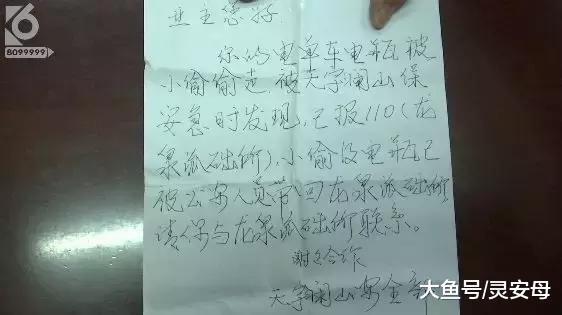 K6
8099999
业主您好
你的电单车电瓶被
小偷偷走,被天宇阑山保
安急时发现,已报110(龙
泉派础所),小偷及电瓶已
被公安人员带回龙泉派础所
请你与龙泉派础所联系。
谢谢合作
天宇阑山安全部
大鱼号/灵安母